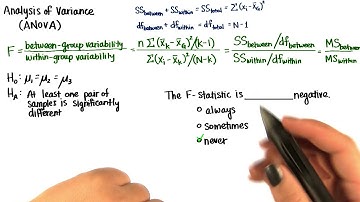 Analysis of Variance
(ANOVA)
SSbetween + SSwithin = SStotal = Σ(xi - x̄G)²
dfbetween + dfwithin = dftotal = N-1
F = between-group variability / within-group variability = n Σ(x̄k - x̄G)²/(k-1) / Σ(xi - x̄k)²/(N-k) = SSbetween/dfbetween / SSwithin/dfwithin = MSbetween / MSwithin
H₀: μ₁ = μ₂ = μ₃
HA: At least one pair of
samples is significantly
different
The F-statistic is ________ negative.
always
sometimes
never